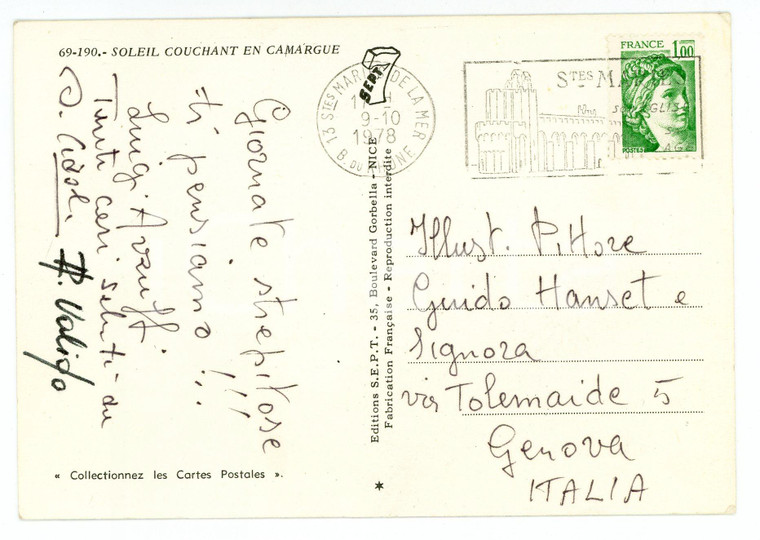 69-190.- SOLEIL COUCHANT EN CAMARGUE
Giornate strepitose
ti pensiamo !!!
Luigi
Tanti cari saluti da
« Collectionnez les Cartes Postales ».
Editions S.E.P.T. - 35, Boulevard Gorbella - NICE
Fabrication Française - Reproduction interdite
SEPT
13 STES MARIES DE LA MER
9-10
1978
B. DU RHONE
STES MA
SON EGLISE
FRANCE 1,00
POSTES
Illust. Pittore
Guido Hanset e
Signora
via Tolemaide 5
Genova
ITALIA